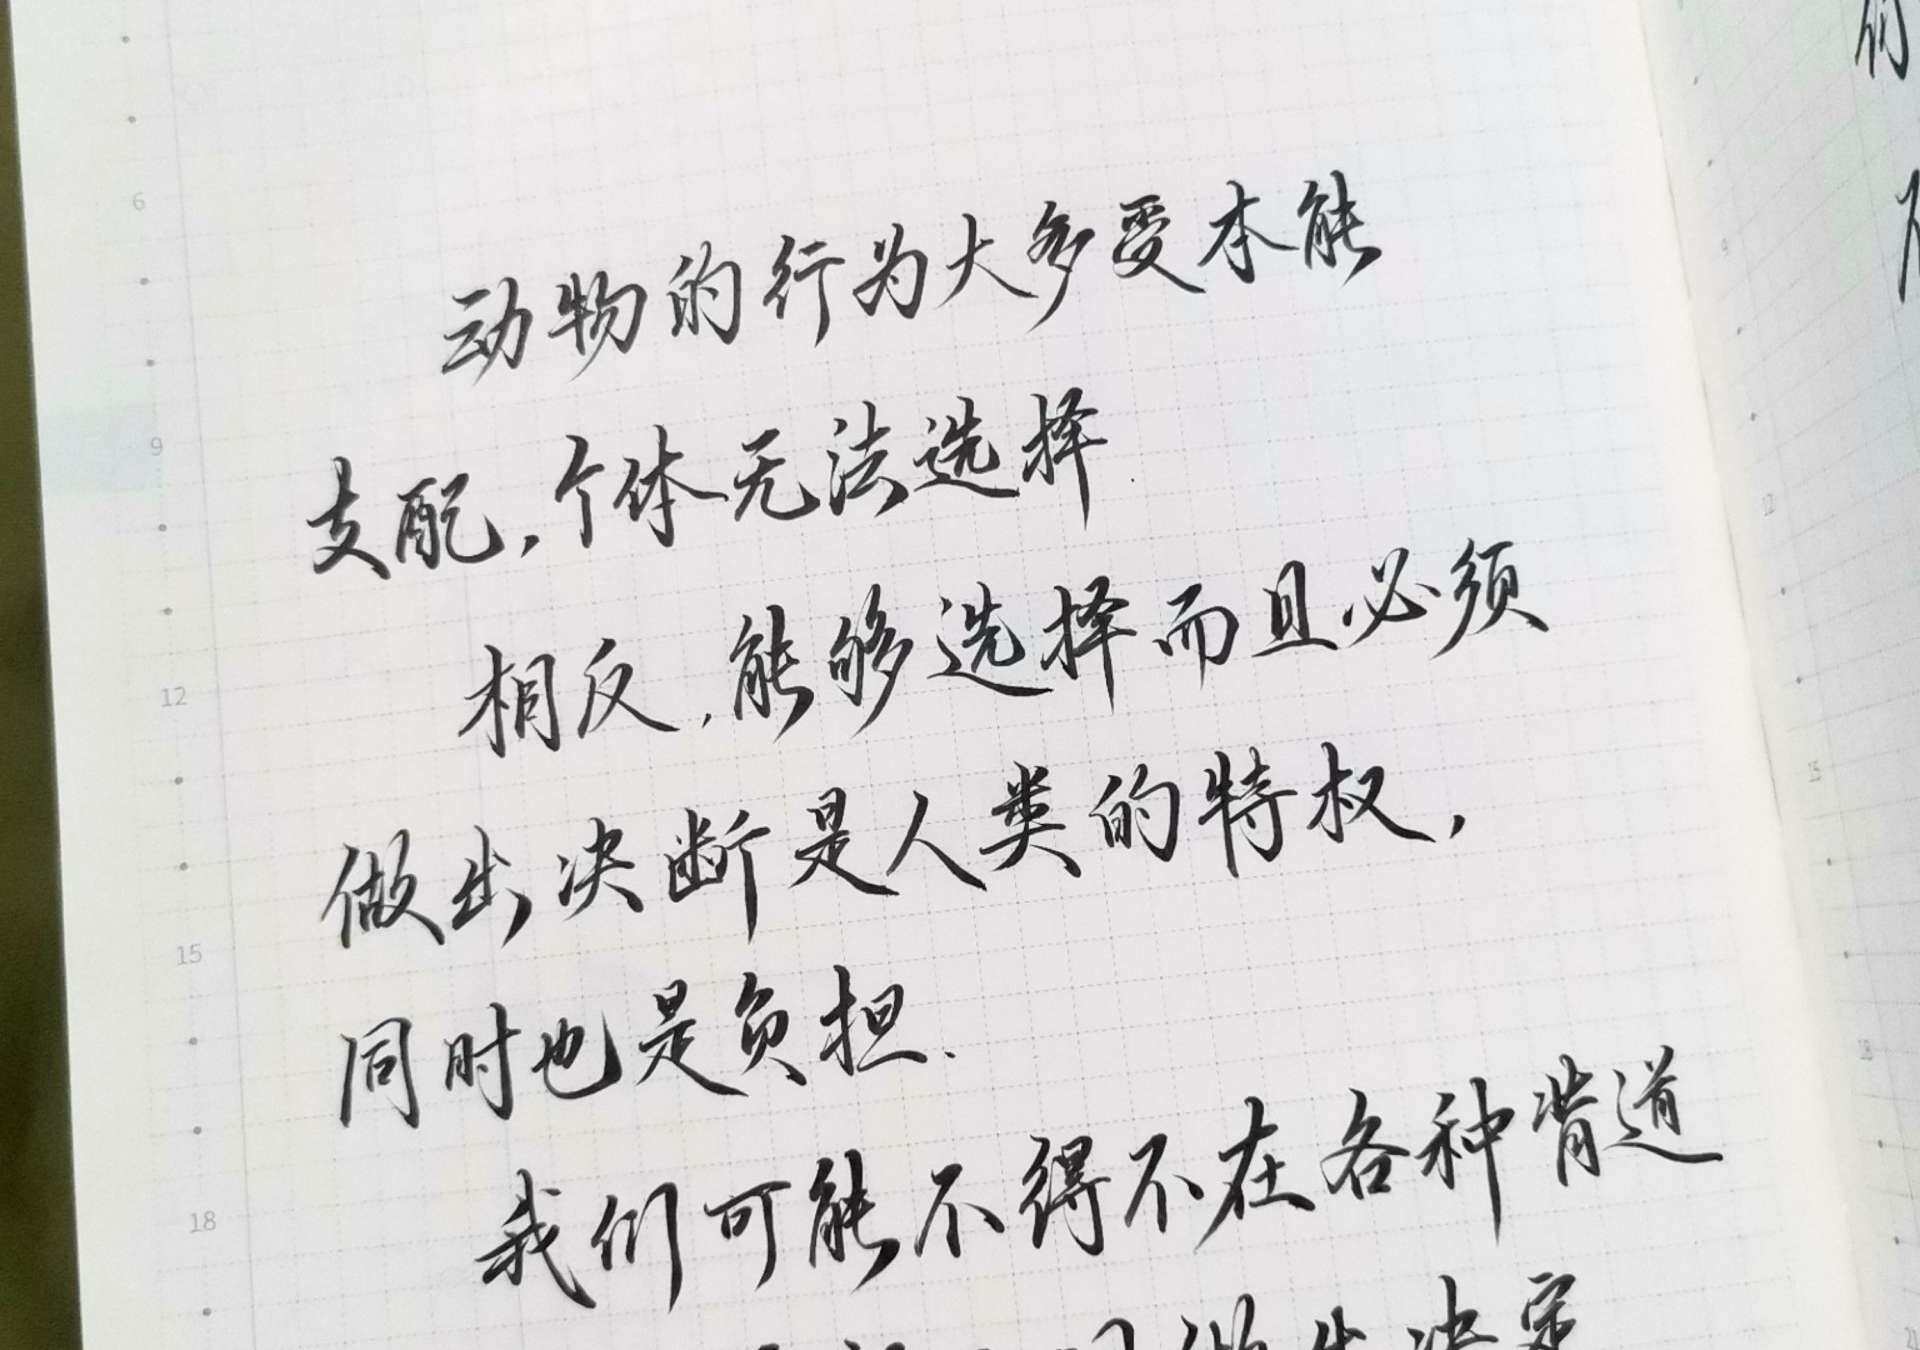 6
动物的行为大多受本能
9
支配，个体无法选择.
相反，能够选择而且必须
12
做出决断是人类的特权，
15
同时也是负担.
我们可能不得不在各种背道
18
做出决定
们